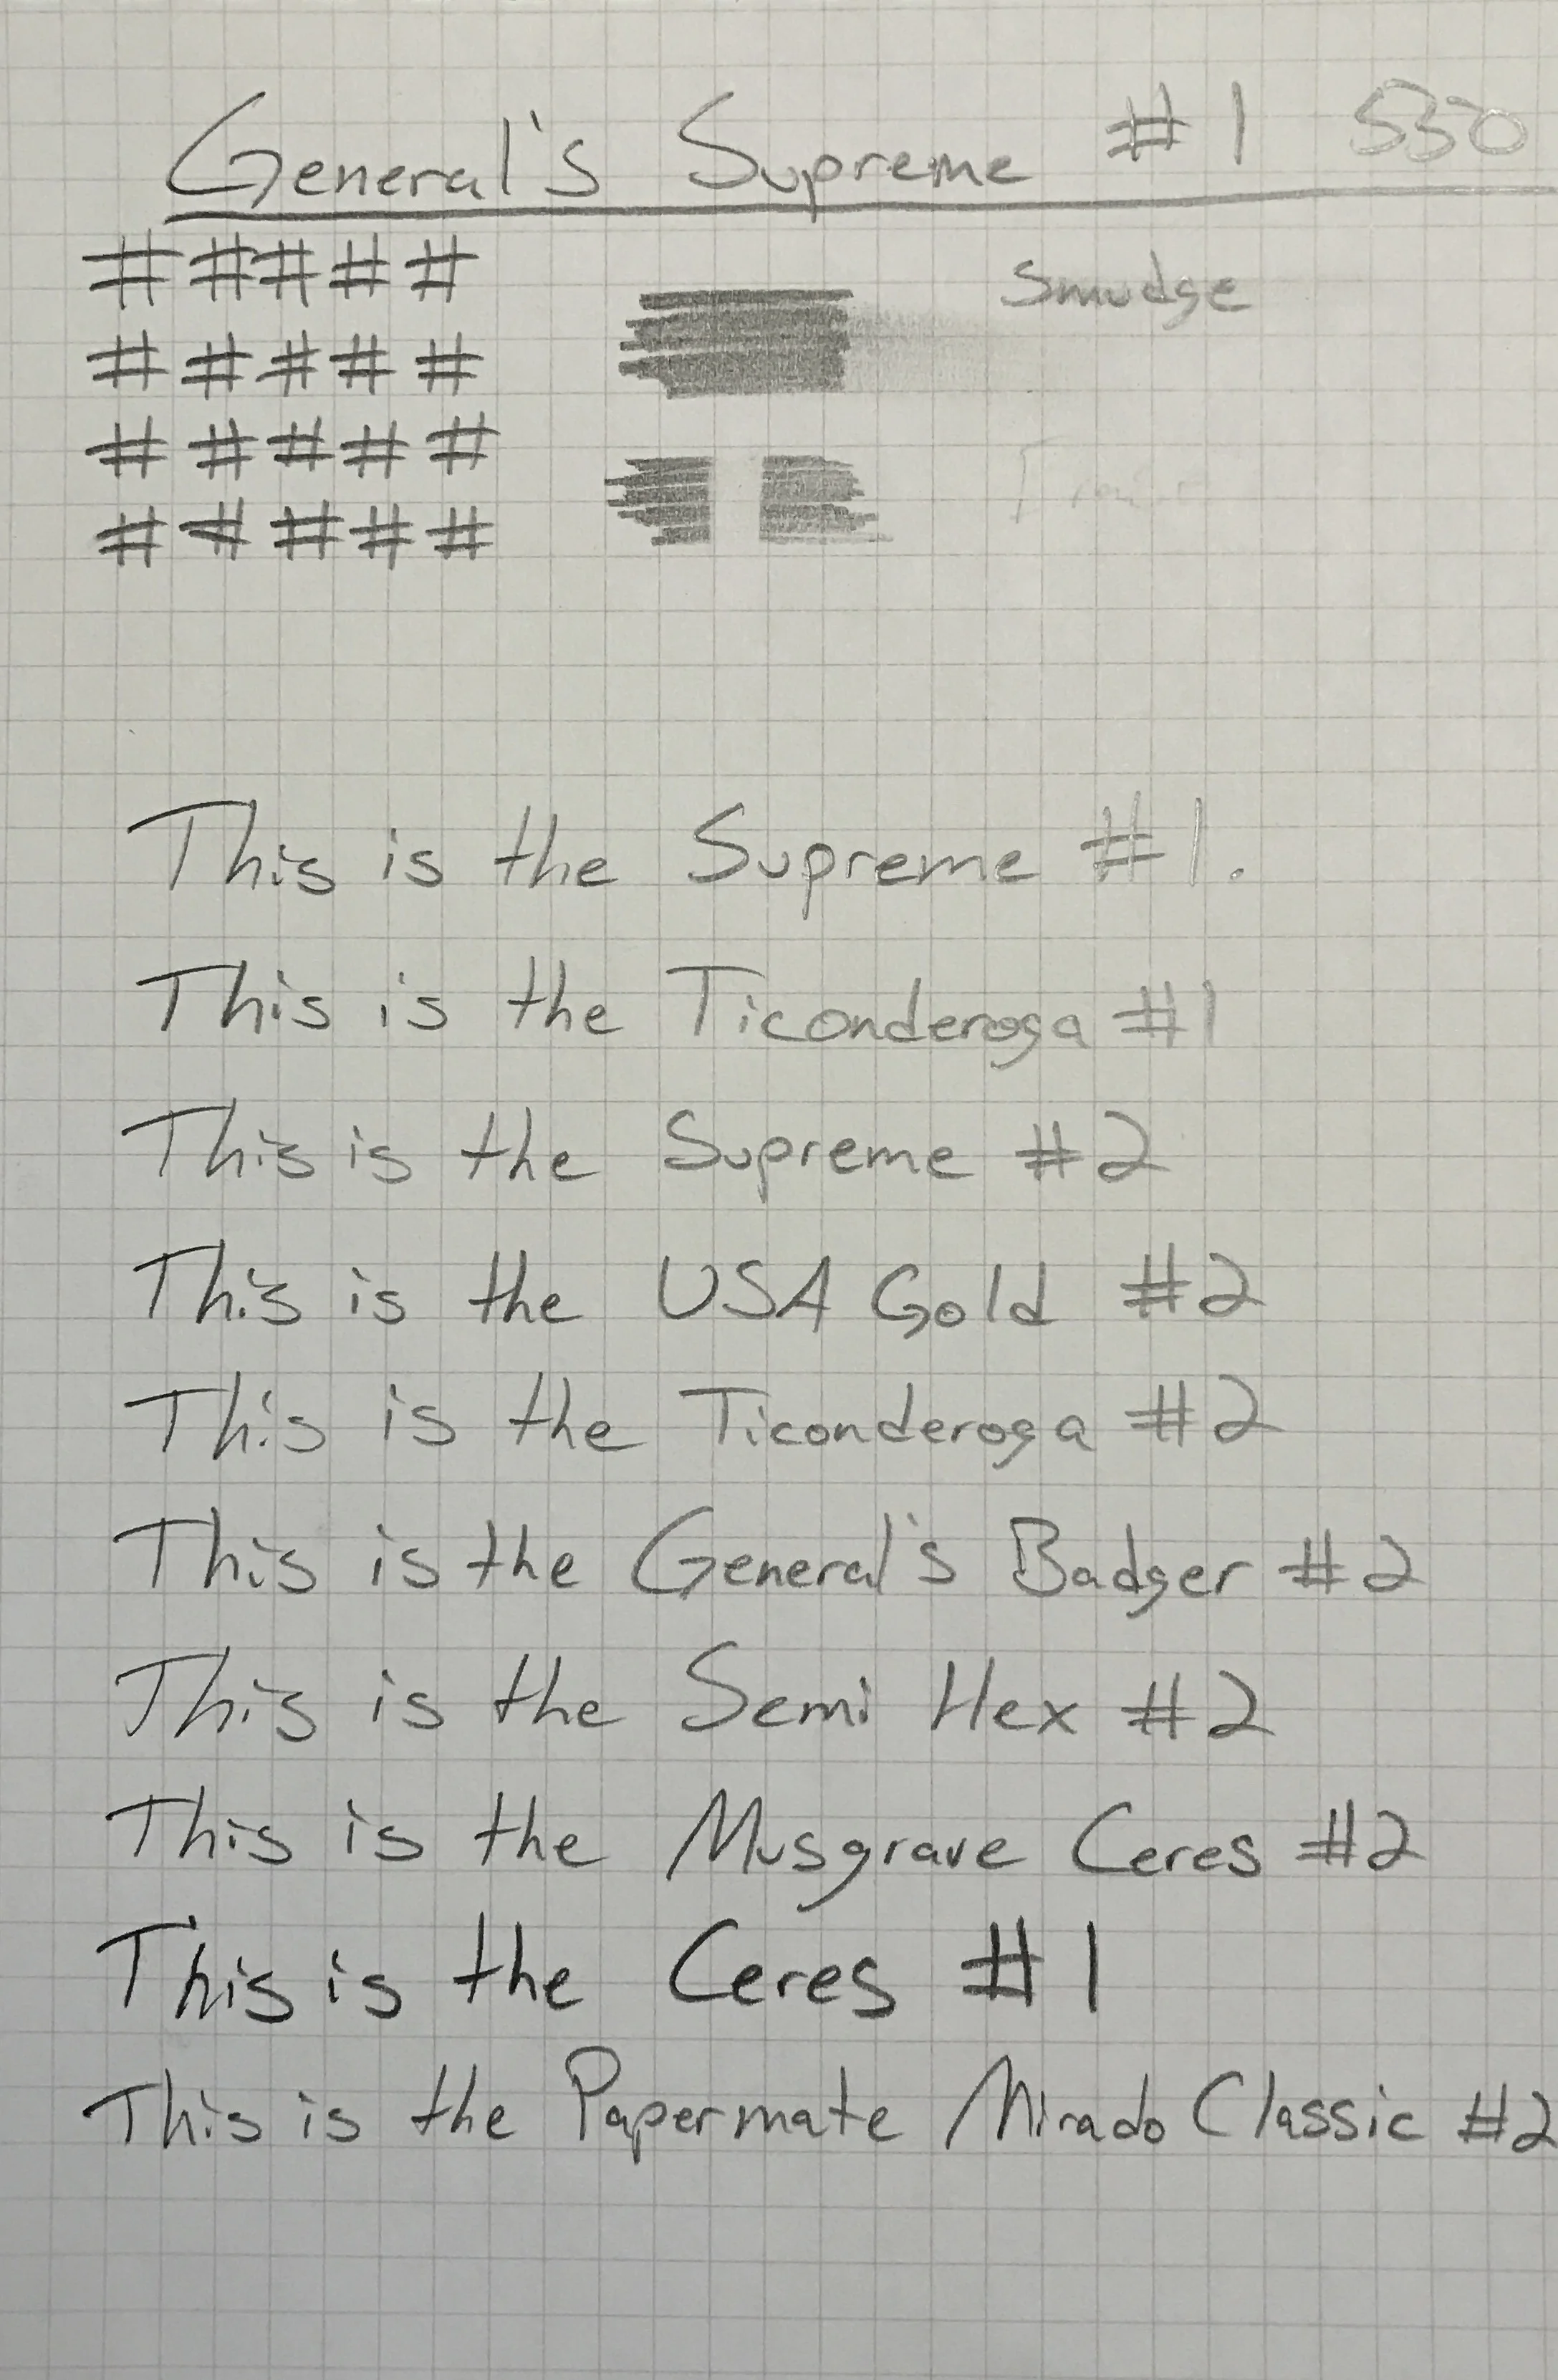 General's Supreme #1 530
# # # # #
Smudge
# # # # #
# # # # #
# # # # #
This is the Supreme #1.
This is the Ticonderoga #1
This is the Supreme #2
This is the USA Gold #2
This is the Ticonderoga #2
This is the General's Badger #2
This is the Semi Hex #2
This is the Musgrave Ceres #2
This is the Ceres #1
This is the Papermate Mirado Classic #2